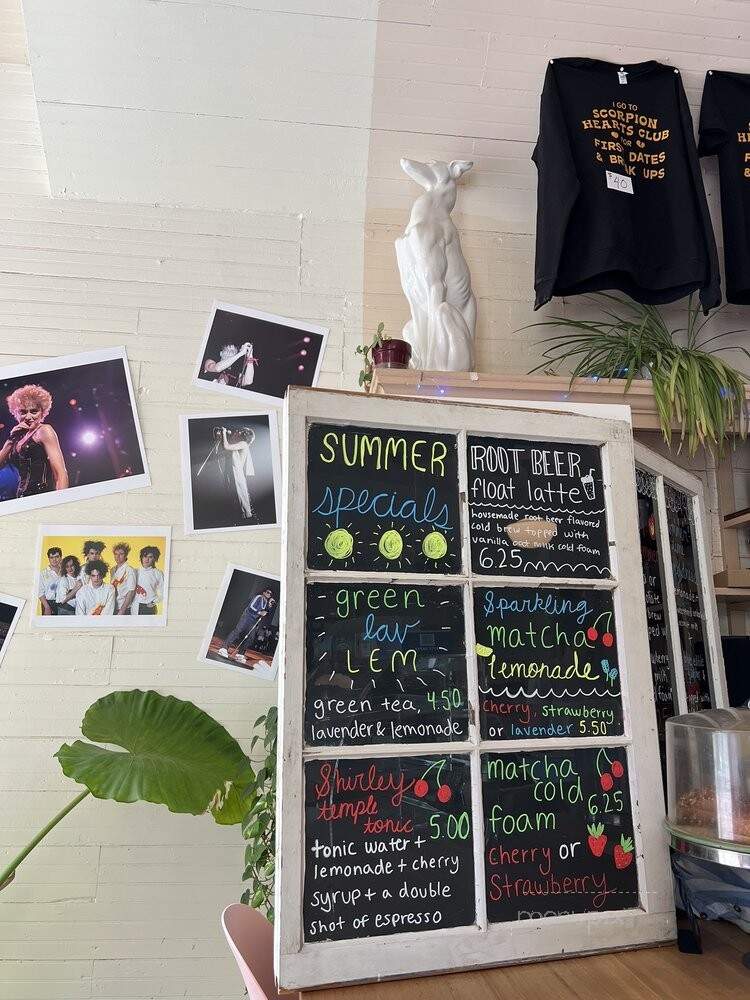 I GO TO
SCORPION
HEARTS CLUB
FOR
FIRST DATES
& BREAK UPS
$40
SUMMER
specials
ROOT BEER
float latte
housemade root beer flavored
cold brew topped with
vanilla oat milk cold foam
6.25
green
lav
LEM
green tea, 4.50
lavender & lemonade
Sparkling
matcha
lemonade
cherry, strawberry
or lavender 5.50
Shirley
temple
tonic
5.00
tonic water +
lemonade + cherry
syrup + a double
shot of espresso
matcha
cold
6.25
foam
cherry or
Strawberry